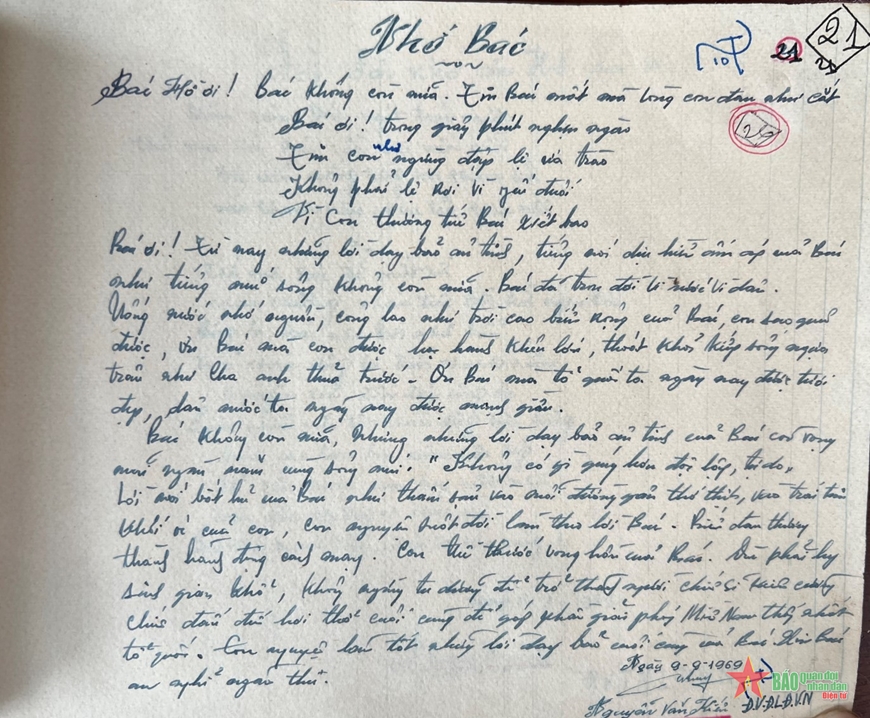 Nhớ Bác
10
21
21
28
29
Bác Hồ ơi! Bác không còn nữa. Tin Bác mất mà lòng con đau như cắt
Bác ơi! trong giây phút nghẹn ngào
Tim con như ngừng đập lệ ứa trào
Không phải lệ rơi vì yếu đuối
Vì con thương tiếc Bác xiết bao
Bác ơi! Từ nay những lời dạy bảo ân tình, tiếng nói dịu hiền ấm áp của Bác
như tiếng núi sông không còn nữa. Bác đã trọn đời vì nước vì dân.
Uống nước nhớ nguồn, công lao như trời cao biển rộng của Bác, con sao quên
được, ơn Bác mà con được học hành khôn lớn, thoát khỏi kiếp sống ngựa
trâu như cha anh thuở trước - Ơn Bác mà tổ quốc ta ngày nay được tươi
đẹp, dân nước ta ngày nay được mạnh giàu.
Bác không còn nữa, nhưng những lời dạy bảo ân tình của Bác còn vọng
mãi ngàn năm cùng sông núi. "Không có gì quý hơn độc lập, tự do"
Lời nói bất hủ của Bác như thấm sâu vào mỗi đường gân thớ thịt, vào trái tim
khối óc của con, con nguyện suốt đời làm theo lời Bác. Biến đau thương
thành hành động cách mạng. Con thề trước vong hồn của Bác. Dù phải hy
sinh gian khổ, không ngừng tu dưỡng để trở thành người chiến sĩ kiên cường
chiến đấu đến hơi thở cuối cùng để góp phần giải phóng Miền Nam thống nhất
tổ quốc. Con nguyện làm tốt những lời dạy bảo cuối cùng của Bác. Xin Bác
an nghỉ ngàn thu.
Ngày 9-9-1969
Nguyễn Văn Đ.V.Đ.L.Đ.V.N
BÁO Quân đội nhân dân Điện tử